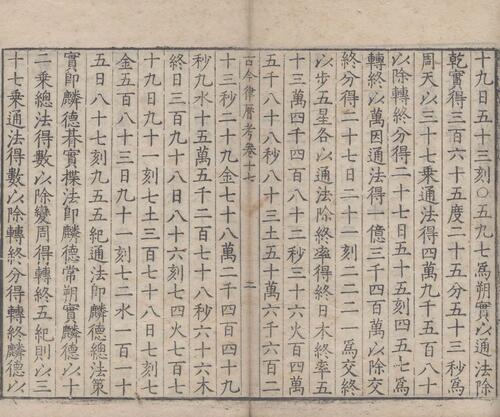 十九日五十三刻〇五九七爲朔實以通法除
乾實得三百六十五度二十五分五十三秒爲
周天以三十七乘通法得四萬九千五百八十
以除轉終分得二十七日五十五刻四五七爲
轉終以萬因通法得一億三千四百萬以除交
終分得二十七日二十一刻二二二一爲交終
以步五星各以通法除終率得終日木終率五
十三萬四千四百八十二秒三十六火百四
五千八十八秒八十三土五十萬六千六百二
古今律曆考卷十七 二
十三秒二十九金七十八萬二千四百四十九
秒九水十五萬五千二百七十八秒六十六木
終日三百九十八日八十六刻七四火七百七
十九日九十一刻七土三百七十八日七刻
金五百八十三日九十一刻七二水一百一十
五日八十七刻九五五紀通法即麟德總法策
實即麟德朞實揲法即麟德常朔實麟德以十
二乘總法得數以除變周得轉終五紀則以三
十七乘通法得數以除轉終分得轉終麟德以